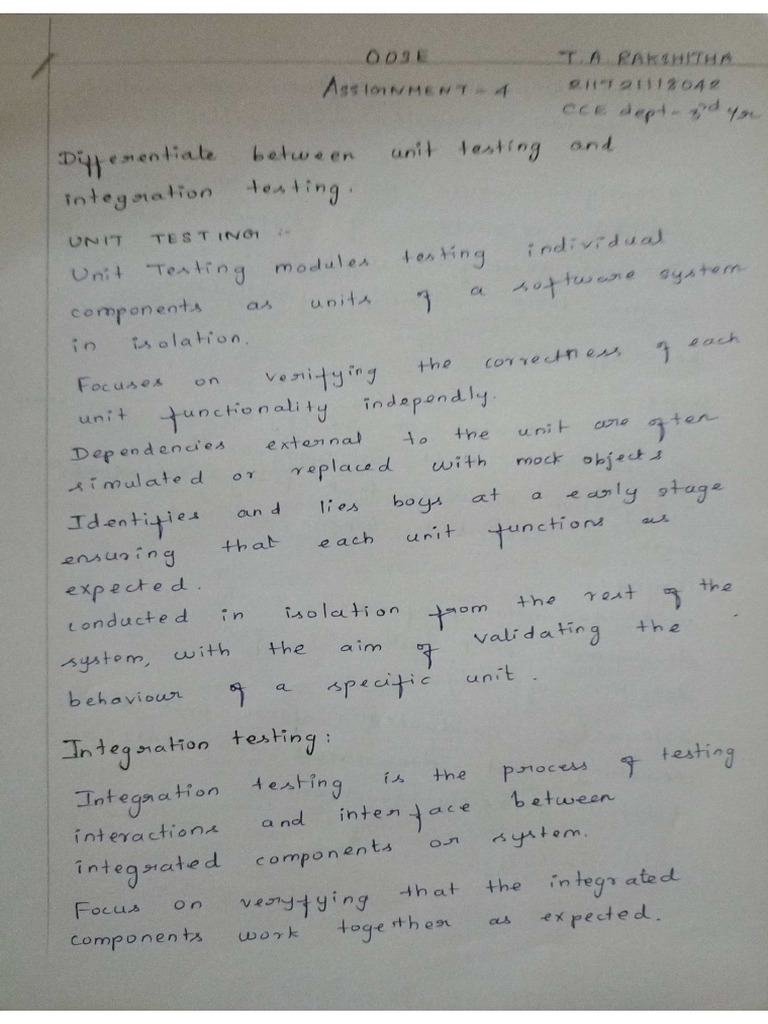 OOSE T. A. RAKSHITHA
ASSIGNMENT - 4 211721118042
CCE dept - 3rd Year
Differentiate between unit testing and
integration testing.
UNIT TESTING :-
Unit Testing modules testing individual
components as units of a software system
in isolation.
Focuses on verifying the correctness of each
unit functionality independly.
Dependencies external to the unit are often
simulated or replaced with mock objects
Identifies and lies boys at a early stage
ensuring that each unit functions as
expected.
conducted in isolation from the rest of the
system, with the aim of validating the
behaviour of a specific unit.
Integration testing:
Integration testing is the process of testing
interactions and interface between
integrated components or system.
Focus on veryfying that the integrated
components work together as expected.